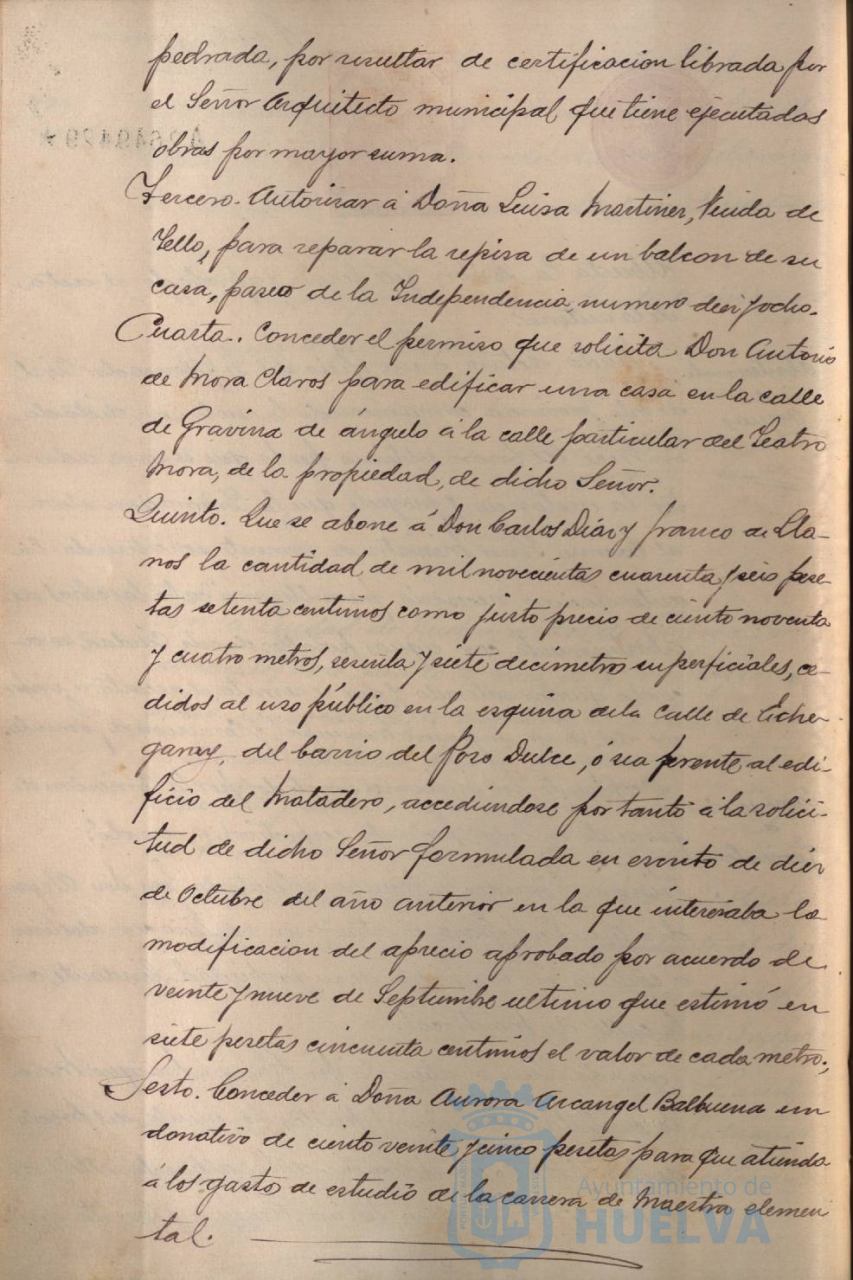 pedrada, por resultar de certificacion librada por
el Señor Arquitecto municipal que tiene ejecutadas
obras por mayor suma.
Tercero. Autorizar á Doña Luisa Martinez, Viuda de
Tello, para reparar la repisa de un balcon de su
casa, paseo de la Independencia, numero diez y ocho.
Cuarta. Conceder el permiso que solicita Don Antonio
de Mora Claros para edificar una casa en la calle
de Gravina de ángulo á la calle particular del Teatro
Mora, de la propiedad, de dicho Señor.
Quinto. Que se abone á Don Carlos Diaz y franco de Lla-
nos la cantidad de mil novecientas cuarenta y seis pese-
tas setenta centimos como justo precio de ciento noventa
y cuatro metros, sesenta y siete decimetros superficiales, ce-
didos al uso público en la esquina de la Calle de Eche-
garay, del barrio del Pozo Dulce, ó sea frente al edi-
ficio del Matadero, accediendose por tanto á la solici-
tud de dicho Señor formulada en escrito de diez
de Octubre del año anterior en la que interesaba la
modificacion del aprecio aprobado por acuerdo de
veinte y nueve de Septiembre ultimo que estimó en
siete pesetas cincuenta centimos el valor de cada metro;
Sesto. Conceder á Doña Aurora Arcangel Balbuena un
donativo de ciento veinte y cinco pesetas para que atienda
á los gasto de estudio de la carrera de Maestra elemen
tal.
Ayuntamiento de
HUELVA